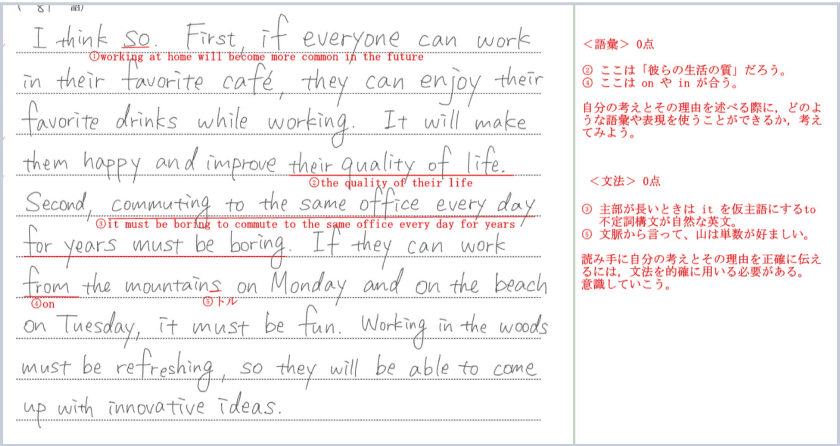 I think so. First, if everyone can work
①working at home will become more common in the future
in their favorite café, they can enjoy their
favorite drinks while working. It will make
them happy and improve their quality of life.
②the quality of their life
Second, commuting to the same office every day
③it must be boring to commute to the same office every day for years
for years must be boring. If they can work
from the mountains on Monday and on the beach
④on
⑤トル
on Tuesday, it must be fun. Working in the woods
must be refreshing, so they will be able to come
up with innovative ideas.
＜語彙＞ 0点
② ここは「彼らの生活の質」だろう。
④ ここは on や in が合う。
自分の考えとその理由を述べる際に，どのよ
うな語彙や表現を使うことができるか，考え
てみよう。
＜文法＞ 0点
③ 主部が長いときは it を仮主語にするto
不定詞構文が自然な英文。
⑤ 文脈から言って、山は単数が好ましい。
読み手に自分の考えとその理由を正確に伝え
るには，文法を的確に用いる必要がある。
意識していこう。